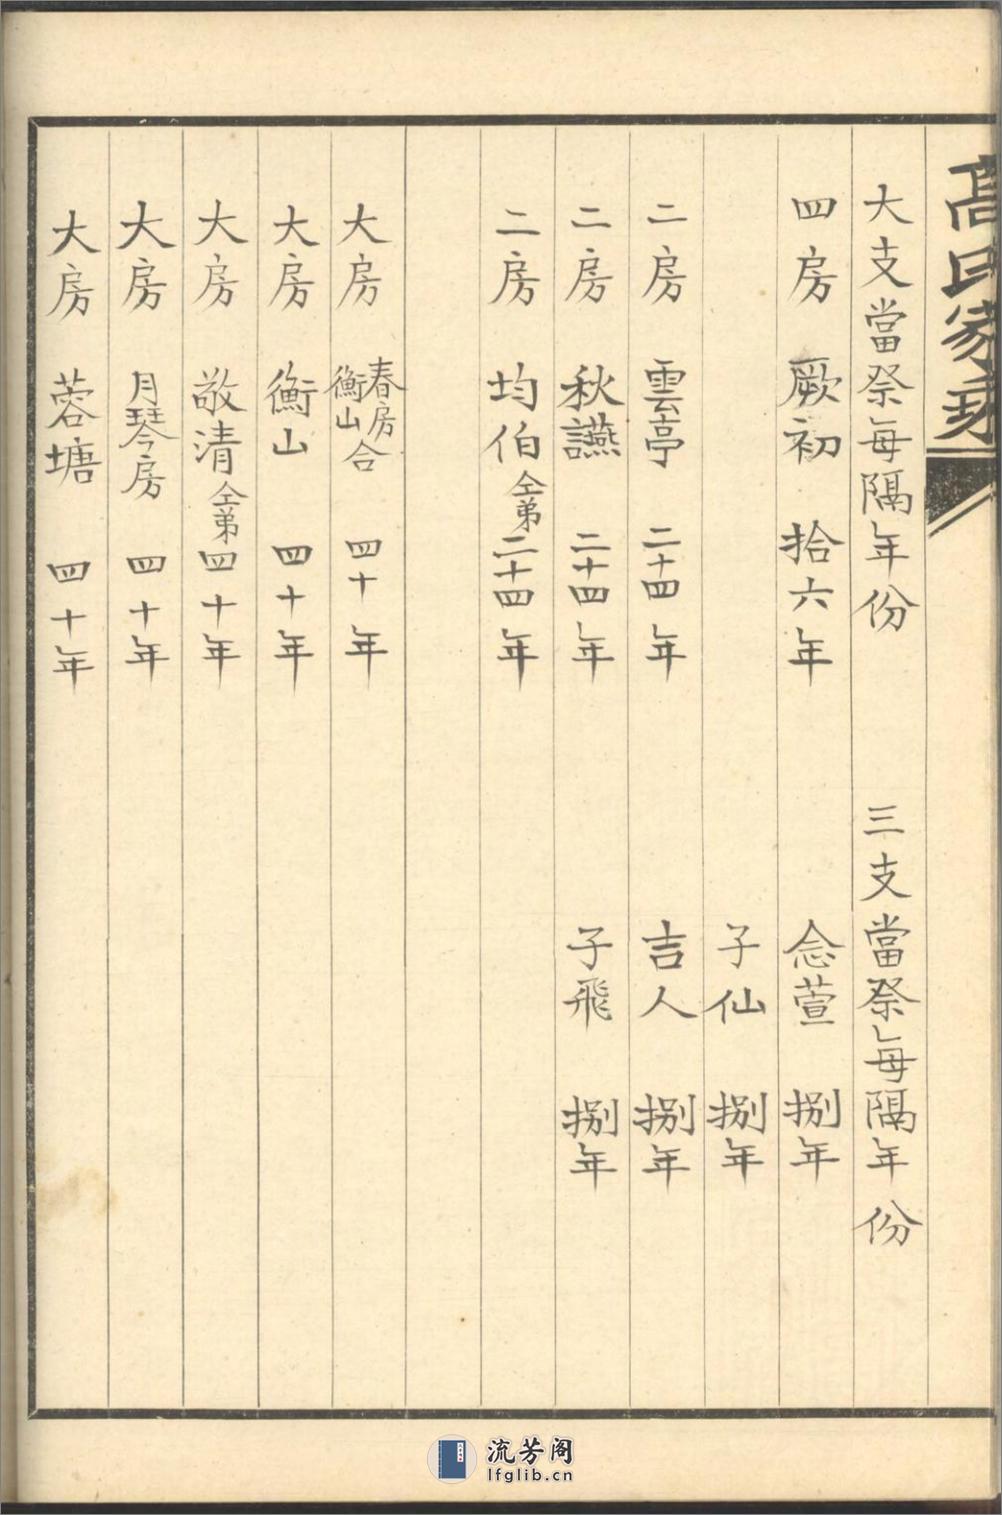 高氏家乘
大支當祭每隔年份　三支當祭每隔年份
四房　厥初　拾六年　念萱　捌年
子仙　捌年
二房　雲亭　二十四年　吉人　捌年
二房　秋讌　二十四年　子飛　捌年
二房　均伯仝弟　二十四年
大房　春房衡山合　四十年
大房　衡山　四十年
大房　敬清仝弟　四十年
大房　月琴房　四十年
大房　蓉塘　四十年
流芳阁
lfglib.cn